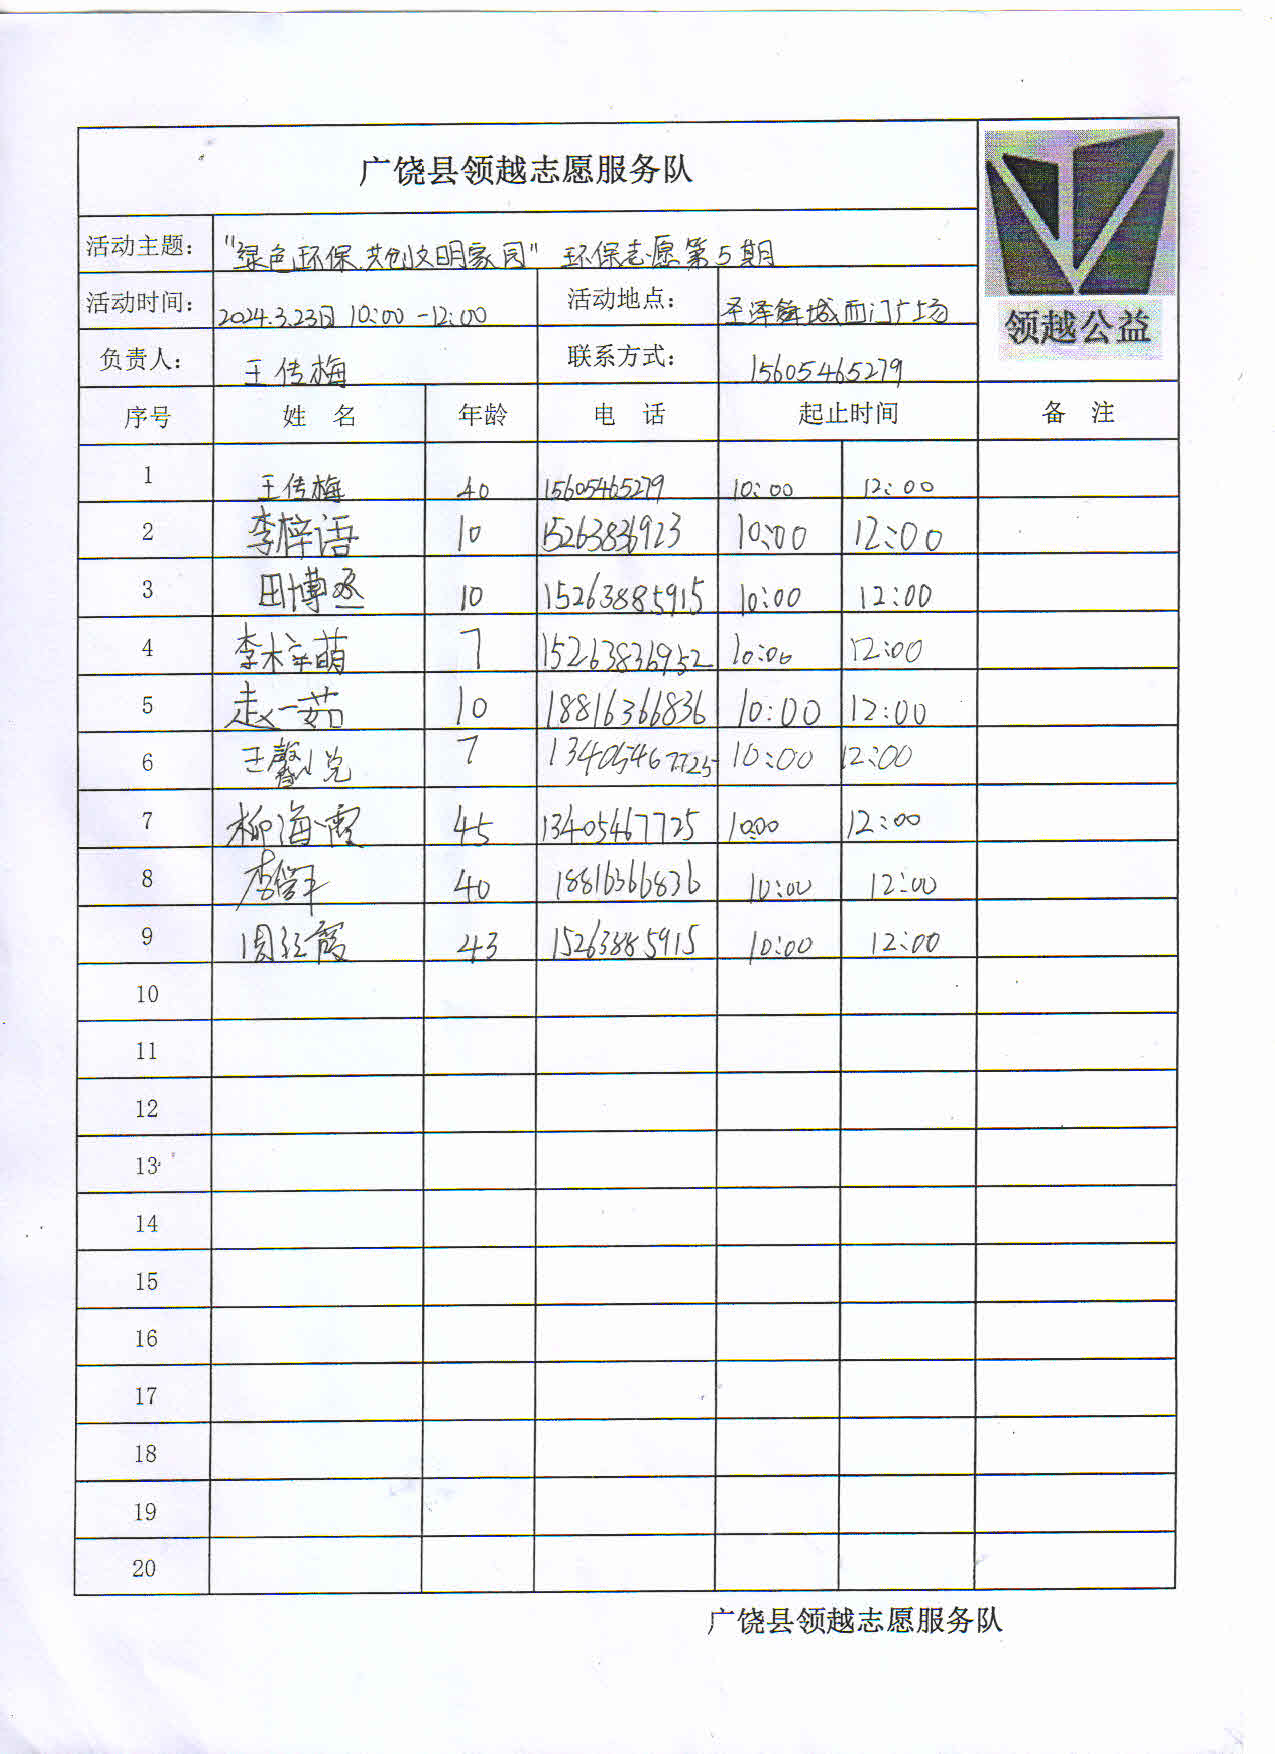 广饶县领越志愿服务队
领越公益
活动主题： "绿色环保.共创文明家园" 环保志愿第5期
活动时间： 2024.3.23日 10:00-12:00 活动地点： 圣泽舜城西门广场
负责人： 王传梅 联系方式： 15605465279
序号 姓 名 年龄 电 话 起止时间 备 注
1 王传梅 40 15605465279 10:00 12:00
2 李梓语 10 15263836923 10:00 12:00
3 田博丞 10 15263885915 10:00 12:00
4 李梓萌 7 15263836952 10:00 12:00
5 赵一茹 10 18816366836 10:00 12:00
6 王馨悦 7 13405467725 10:00 12:00
7 柳海霞 45 13405467725 10:00 12:00
8 40 18816366836 10:00 12:00
9 周红霞 43 15263885915 10:00 12:00
10
11
12
13
14
15
16
17
18
19
20
广饶县领越志愿服务队